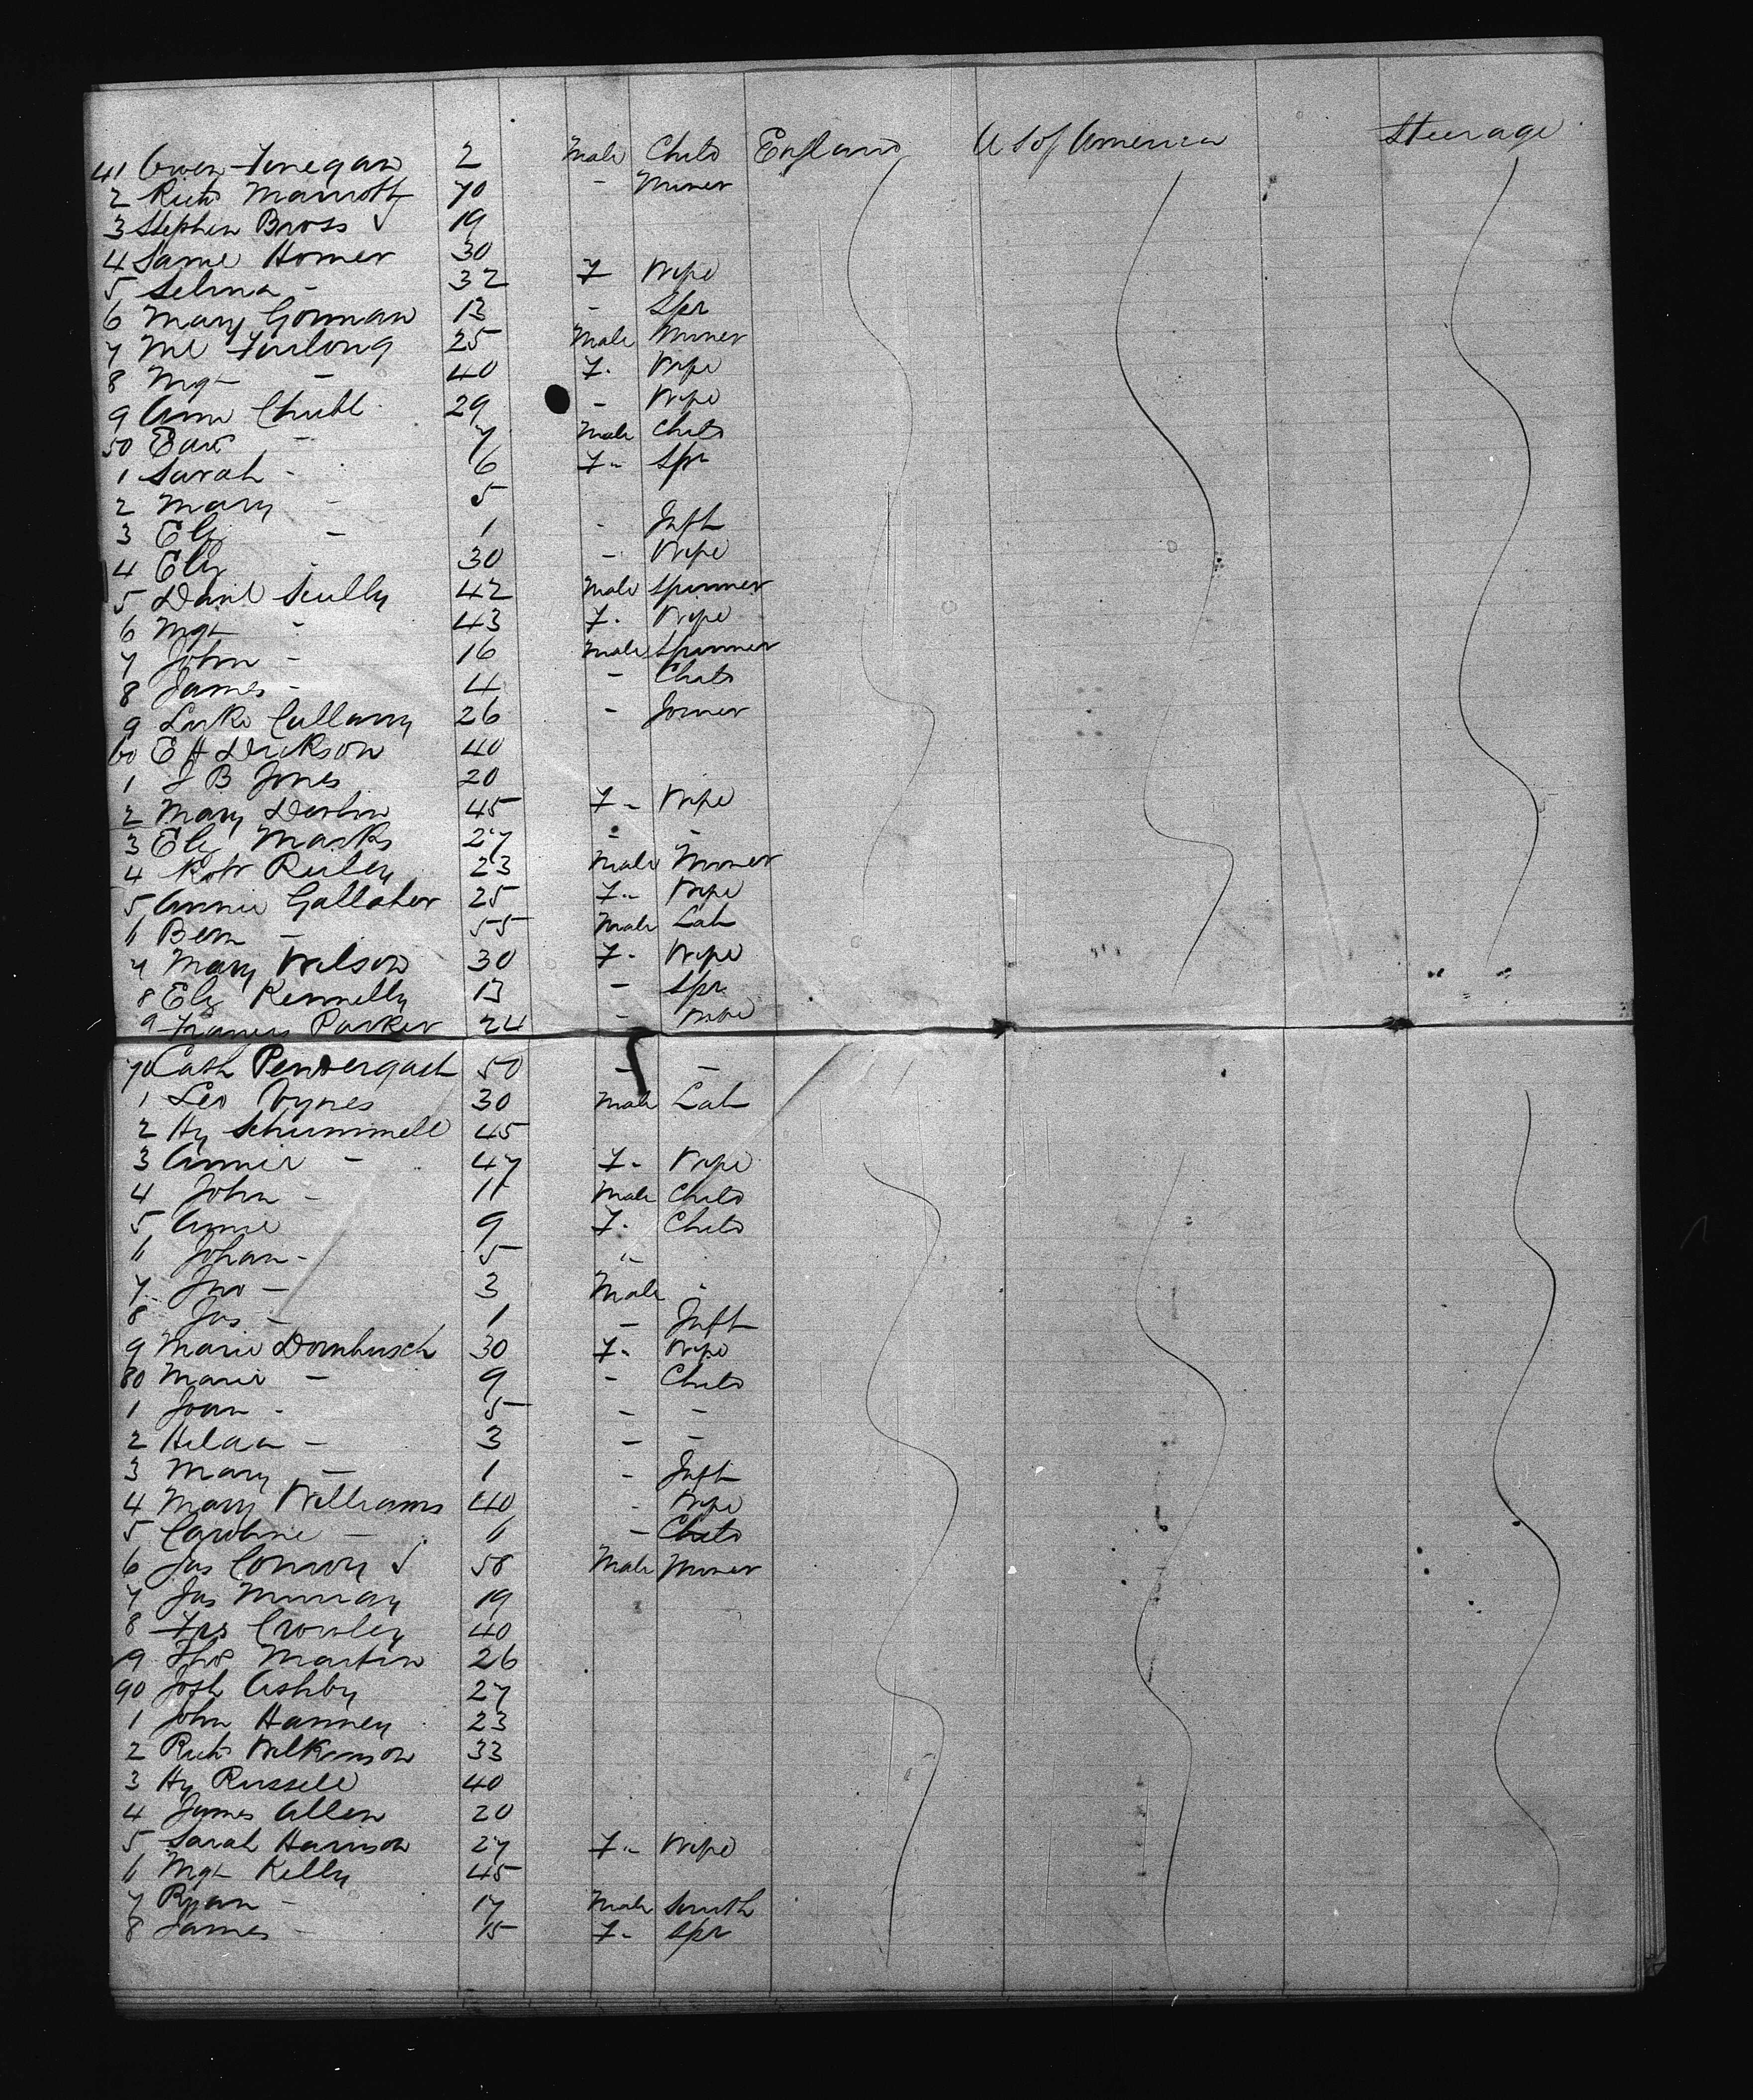 41 Owen Finegan 2 Male Child England U S of America Steerage
2 Richd Marriott 70 - Miner
3 Stephen Bross 19
4 Saml Homer 30
5 Selina - 32 F Wife
6 Mary Gorman 13 - Spr
7 Ml Furlong 25 Male Miner
8 Mgt - 40 F. Wife
9 Ann Chubb 29 - Wife
50 Edwd - 7 Male Child
1 Sarah - 6 F- Spr
2 Mary - 5
3 Eliz - 1 - Inft
4 Eliz - 30 - Wife
5 Danl Scully 42 Male Spinner
6 Mgt - 43 F. Wife
7 John - 16 Male Spinner
8 James - 4 - Child
9 Luke Cullarny 26 - Joiner
60 E H Dickson 40
1 J B Jones 20
2 Mary Devlin 45 F- Wife
3 Eliz Marks 27 - -
4 Robt Ruley 23 Male Miner
5 Annie Gallaher 25 F- Wife
6 Bern - 55 Male Lab
7 Mary Wilson 30 F- Wife
8 Eliz Kennelly 13 - Spr
9 Francis Parker 24 - Wife
70 Cath Pendergast 50 - -
1 Leo Vynes 30 Male Lab
2 Hy Schummell 45
3 Annie - 47 F- Wife
4 John - 11 Male Child
5 Annie 9 F. Child
6 Johan - 5 "
7 Jno - 3 Male -
8 Jas - 1 - Inft
9 Marie Dornbusch 30 F- Wife
80 Marie - 9 - Child
1 Joan - 5 - -
2 Helda - 3 - -
3 Mary - 1 - Inft
4 Mary Williams 40 - Wife
5 Caroline - 6 - Child
6 Jas Conway 58 Male Miner
7 Jas Murray 19
8 Frs Crowley 40
9 Thos Martin 26
90 Josh Ashby 27
1 John Hanney 23
2 Richd Wilkinson 33
3 Hy Russell 40
4 James Allen 20
5 Sarah Harrison 27 F- Wife
6 Mgt Kelly 45
7 Ryan - 17 Male Smith
8 James - 15 F- Spr